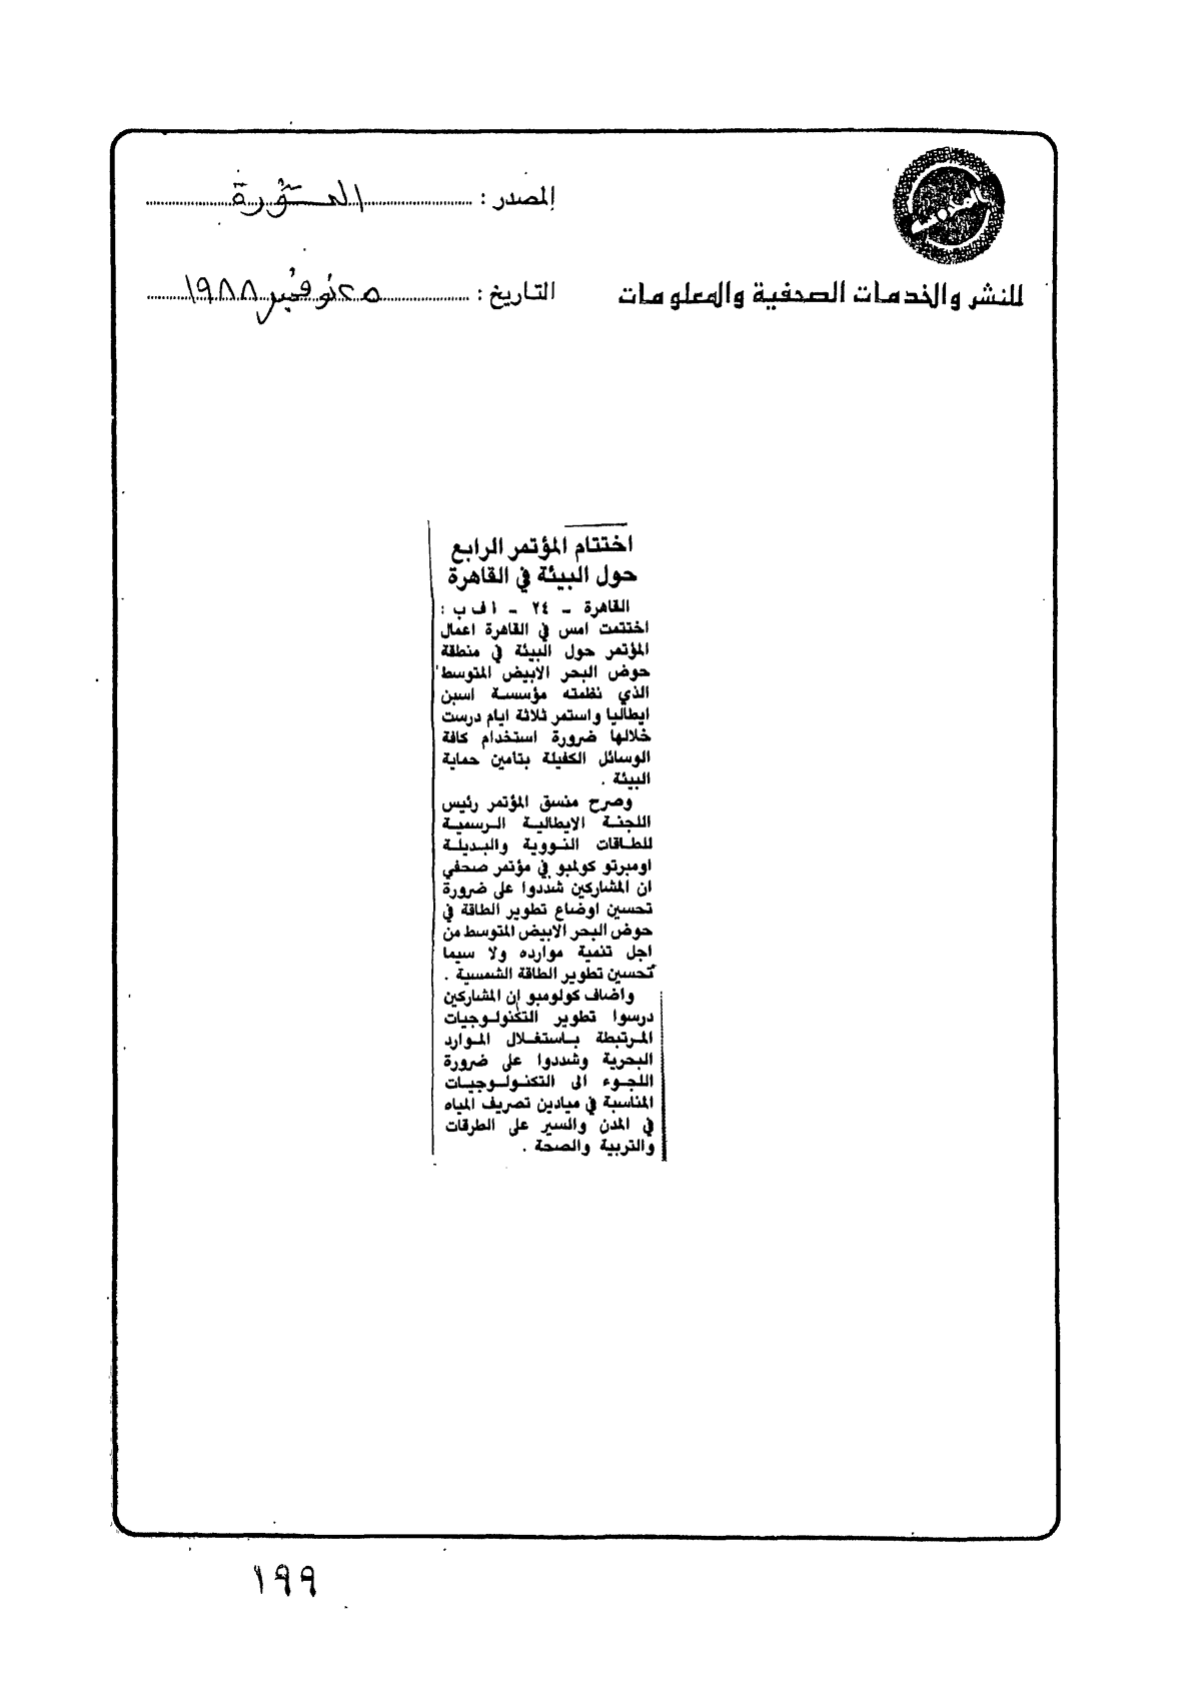 المصدر : الثورة
للنشر والخدمات الصحفية والمعلومات
التاريخ : ٢٥ نوفمبر ١٩٨٨
اختتام المؤتمر الرابع
حول البيئة في القاهرة
القاهرة - ٢٤ - ا ف ب :
اختتمت امس في القاهرة اعمال
المؤتمر حول البيئة في منطقة
حوض البحر الابيض المتوسط
الذي نظمته مؤسسة اسبن
ايطاليا واستمر ثلاثة ايام درست
خلالها ضرورة استخدام كافة
الوسائل الكفيلة بتامين حماية
البيئة .
وصرح منسق المؤتمر رئيس
اللجنة الايطالية الرسمية
للطاقات النووية والبديلة
اومبرتو كولمبو في مؤتمر صحفي
ان المشاركين شددوا على ضرورة
تحسين اوضاع تطوير الطاقة في
حوض البحر الابيض المتوسط من
اجل تنمية موارده ولا سيما
تحسين تطوير الطاقة الشمسية .
واضاف كولومبو ان المشاركين
درسوا تطوير التكنولوجيات
المرتبطة باستغلال الموارد
البحرية وشددوا على ضرورة
اللجوء الى التكنولوجيات
المناسبة في ميادين تصريف المياه
في المدن والسير على الطرقات
والتربية والصحة .
١٩٩